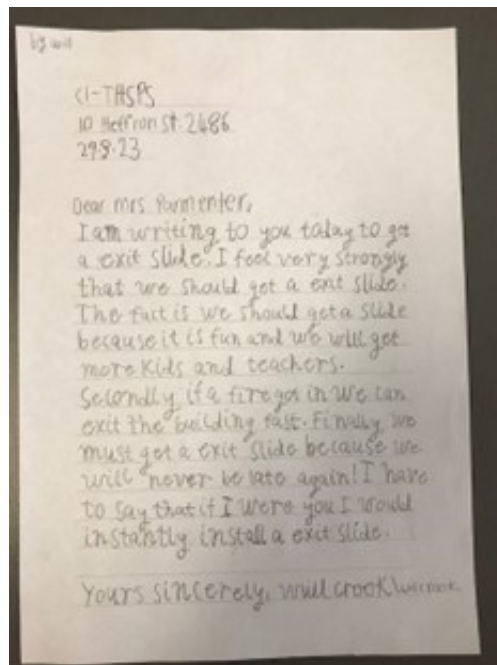 by will
C1-THSPS
10 Heffron St. 2486
29.8.23
Dear Mrs Parmenter,
I am writing to you today to get
a exit slide. I feel very strongly
that we should get a exit slide.
The fact is we should get a slide
because it is fun and we will get
more kids and teachers.
Secondly if a fire got in we can
exit the building fast. Finally we
must get a exit slide because we
will never be late again! I have
to say that if I were you I would
instantly install a exit slide.
Yours sincerely, Will Crook